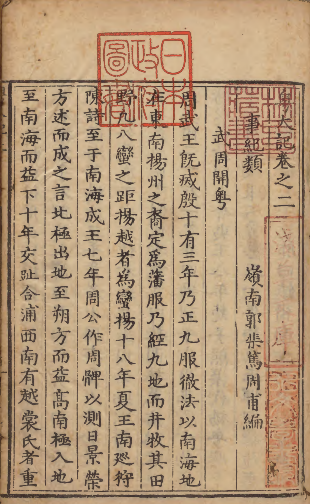 粵大記卷之二
事紀類
嶺南郭棐篤周甫編
武周開粵
周武王既滅殷十有三年乃正九服徹法以南海地
在東南揚州之裔定為藩服乃經九地而井牧其田
野九八蠻之距揚越者為蠻揚十八年夏王南廵狩
陳詩至于南海成王七年周公作周髀以測日景滎
方述而成之言北極出地至朔方而益高南極入地
至南海而益下十年交趾合浦西南有越裳氏者重
日本
政府
圖書